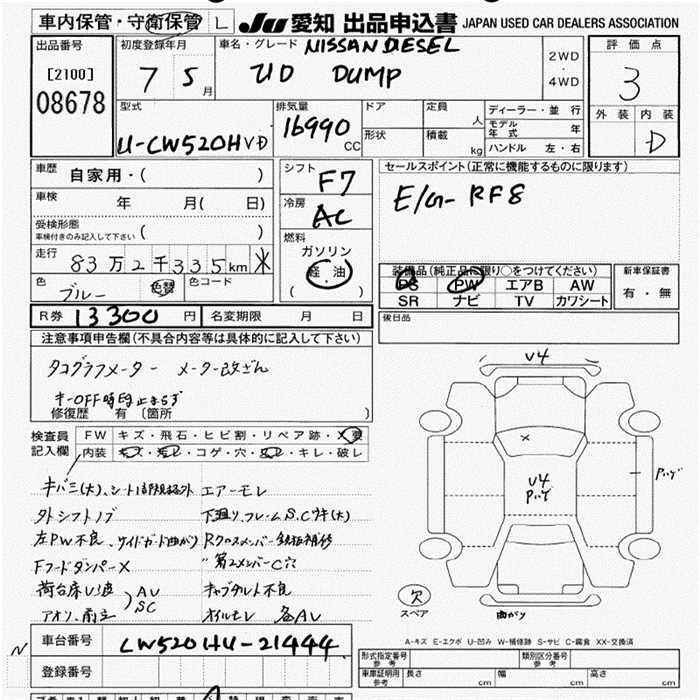 車内保管・守衛保管 L JU 愛知 出品申込書 JAPAN USED CAR DEALERS ASSOCIATION
出品番号
[2100]
08678
初度登録年月
7 5月
車名・グレード NISSAN DIESEL
UD DUMP
2WD
・
4WD
評価点
3
外装 内装
D
型式
U-CW520HVD
排気量
16990 CC
ドア
形状
定員 人
積載 kg
ディーラー・並行
モデル年式 年
ハンドル 左・右
車歴 自家用・( )
車検 年 月( 日)
受検形態
車検付きのみ記入して下さい ( )
走行 83万2千335km
色 ブルー 色替 色コード
シフト F7
冷房 AC
燃料
ガソリン
軽油
( )
セールスポイント(正常に機能するものに限ります)
E/G- RF8
装備品(純正品に限り○をつけてください)
PS PW エアB AW
SR ナビ TV カワシート
新車保証書
有・無
後日品
R券 13300円 名変期限 月 日
注意事項申告欄(不具合内容等は具体的に記入して下さい)
タコグラフメーター メーター改ざん
キーOFF時
修復歴 有 〔箇所 〕
検査員
記入欄
FW キズ・飛石・ヒビ割・リペア跡・X要
内装 キズ・汚レ・コゲ・穴・凹レ・キレ・破レ
キバミ(大)、シート エアーモレ
外シフトノブ 下廻り、フレームS.C
左PW不良、サイドガード曲がり Rクロスメンバー鉄板補修
FフードダンパーX "第2メンバーC穴
荷台床U3波 AU SC キャブチルト不良
アオリ、前立 オイルモレ 各AU
V4
V4
Pハゲ
Pハゲ
曲がり
欠
スペア
A-キズ E-エクボ U-凹み W-補修跡 S-サビ C-腐食 XX-交換済
N
車台番号 CW520HU-21444
登録番号
形式指定番号 参考
類別区分番号 参考
車庫証明用 参考 長さ cm 幅 cm 高さ cm